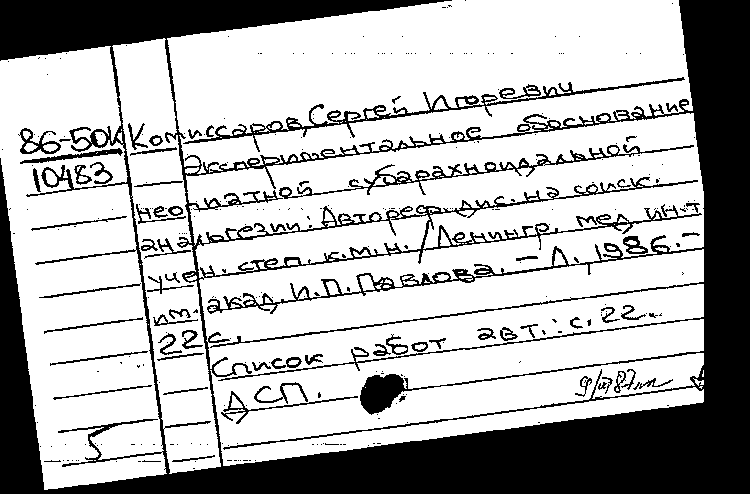 86-50К Комиссаров, Сергей Игоревич
10483 Экспериментальное обоснование
неопиатной субарахноидальной
анальгезии: Автореф. дис. на соиск.
учен. степ. к.м.н. / Ленингр. мед. ин-т
им. акад. И.П. Павлова. – Л., 1986. –
22 с.
Список работ авт.: с. 22.
ДСП.
5